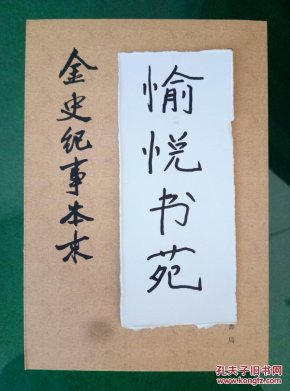 金史纪事本末
愉悦书苑
书局
孔夫子旧书网